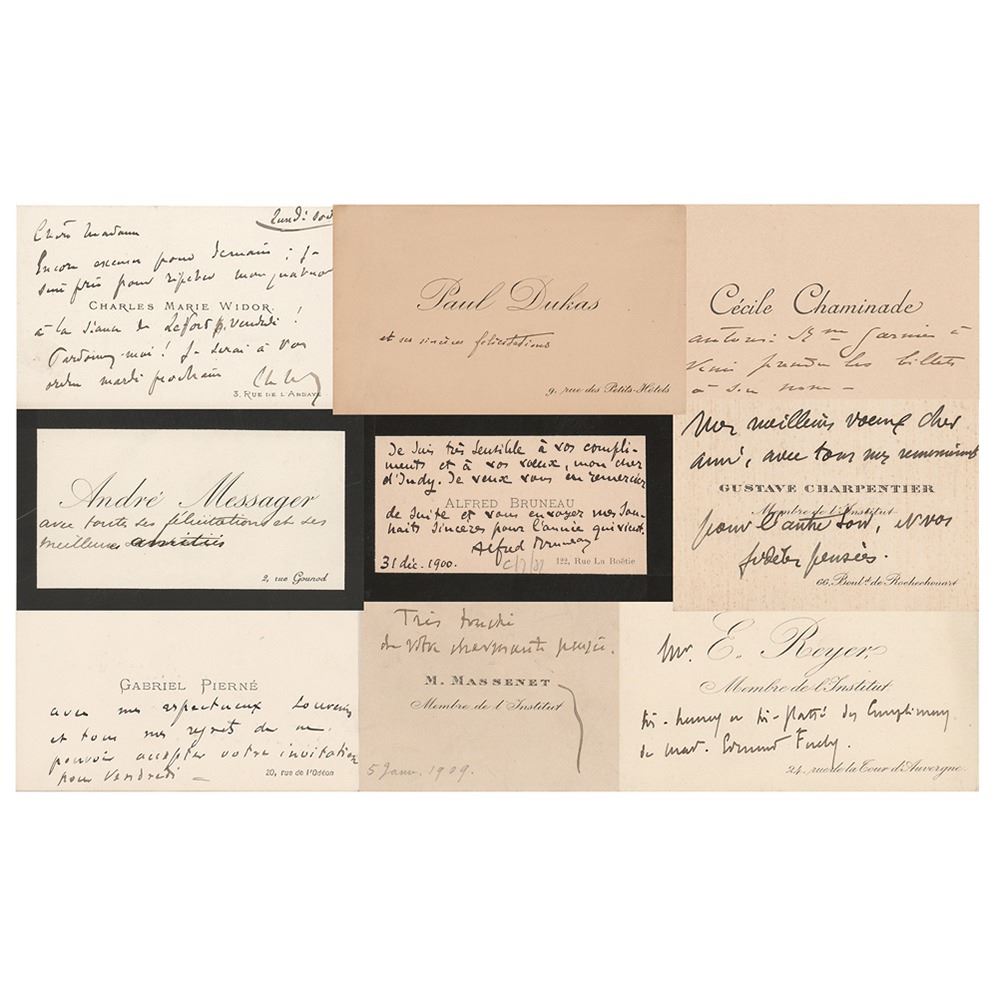 lundi soir
Chère Madame
Encore excusez pour demain ; Je
suis pris pour répéter mon quatuor
CHARLES MARIE WIDOR
à la séance de Lefort, vendredi !
Pardonnez-moi ! Je serai à vos
ordres mardi prochain
3, RUE DE L'ABBAYE
Paul Dukas
et ses sincères félicitations
9, rue des Petits-Hôtels
Cécile Chaminade
autorise Mme Garnier à
venir prendre les billets
à son nom –
André Messager
avec toutes ses félicitations et ses
meilleures amitiés
2, rue Gounod
Je suis très sensible à vos compli-
ments et à vos vœux, mon cher
d'Indy. Je veux vous en remercier
ALFRED BRUNEAU
de suite et vous envoyer mes sou-
haits sincères pour l'année qui vient.
Alfred Bruneau
31 déc. 1900.
122, Rue La Boëtie
Mes meilleurs voeux cher
ami, avec tous mes remerciements
GUSTAVE CHARPENTIER
Membre de l'Institut
pour l'autre soir, et vos
fidèles pensées.
66, Boul.d de Rochechouart
GABRIEL PIERNÉ
avec mes respectueux souvenirs
et tous mes regrets de ne
pouvoir accepter votre invitation
pour Vendredi –
20, rue de l'Odéon
Très touché
de votre charmante pensée.
M. MASSENET
Membre de l'Institut
5 Janv. 1909.
Mr. E. Reyer
Membre de l'Institut
très-heureux et très-flatté des Compliments
de Mad. Edmond Fuchs.
24, rue de la Tour d'Auvergne.